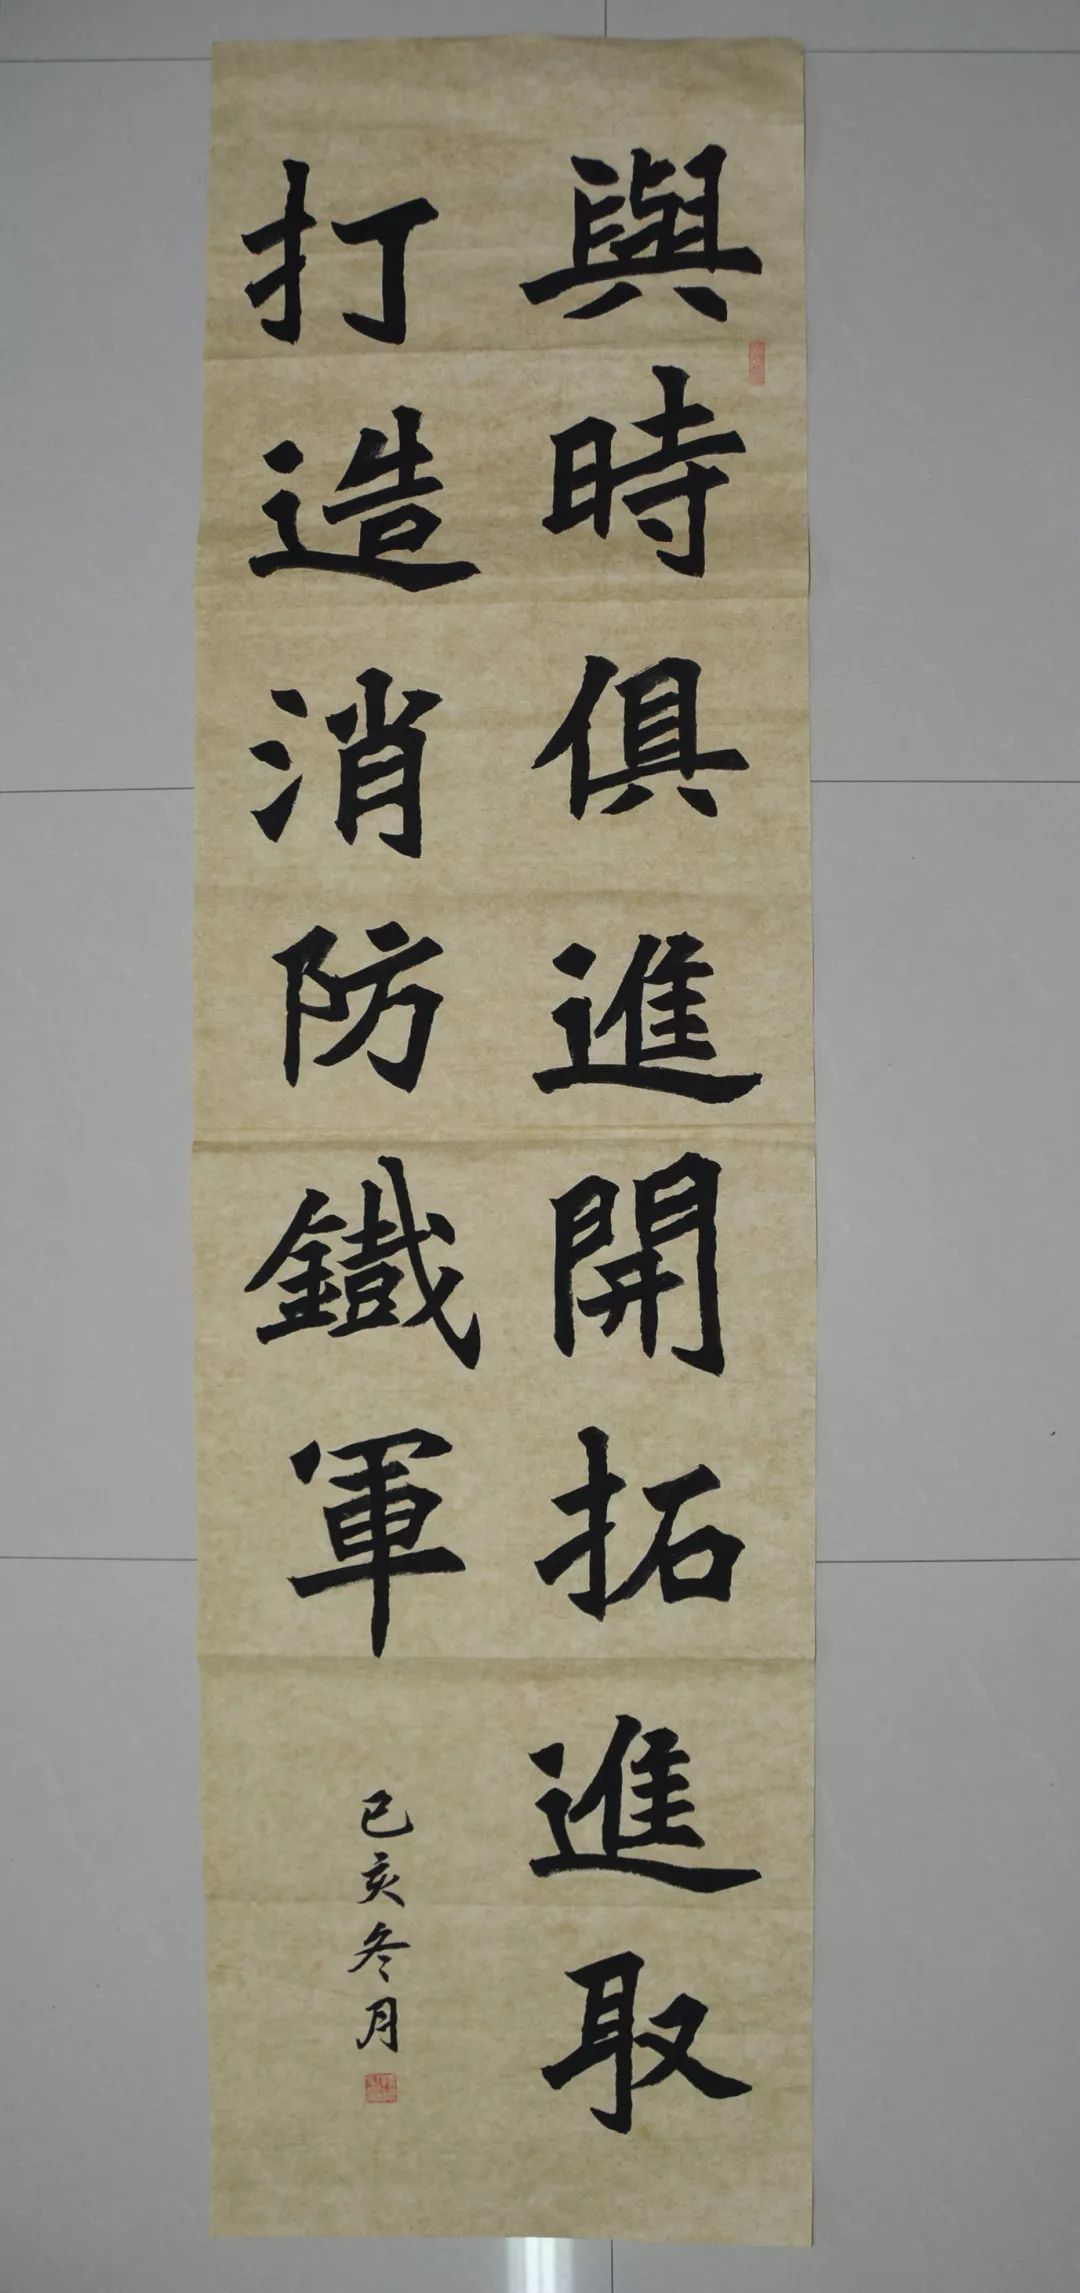 與時俱進開拓進取
打造消防鐵軍
己亥冬月